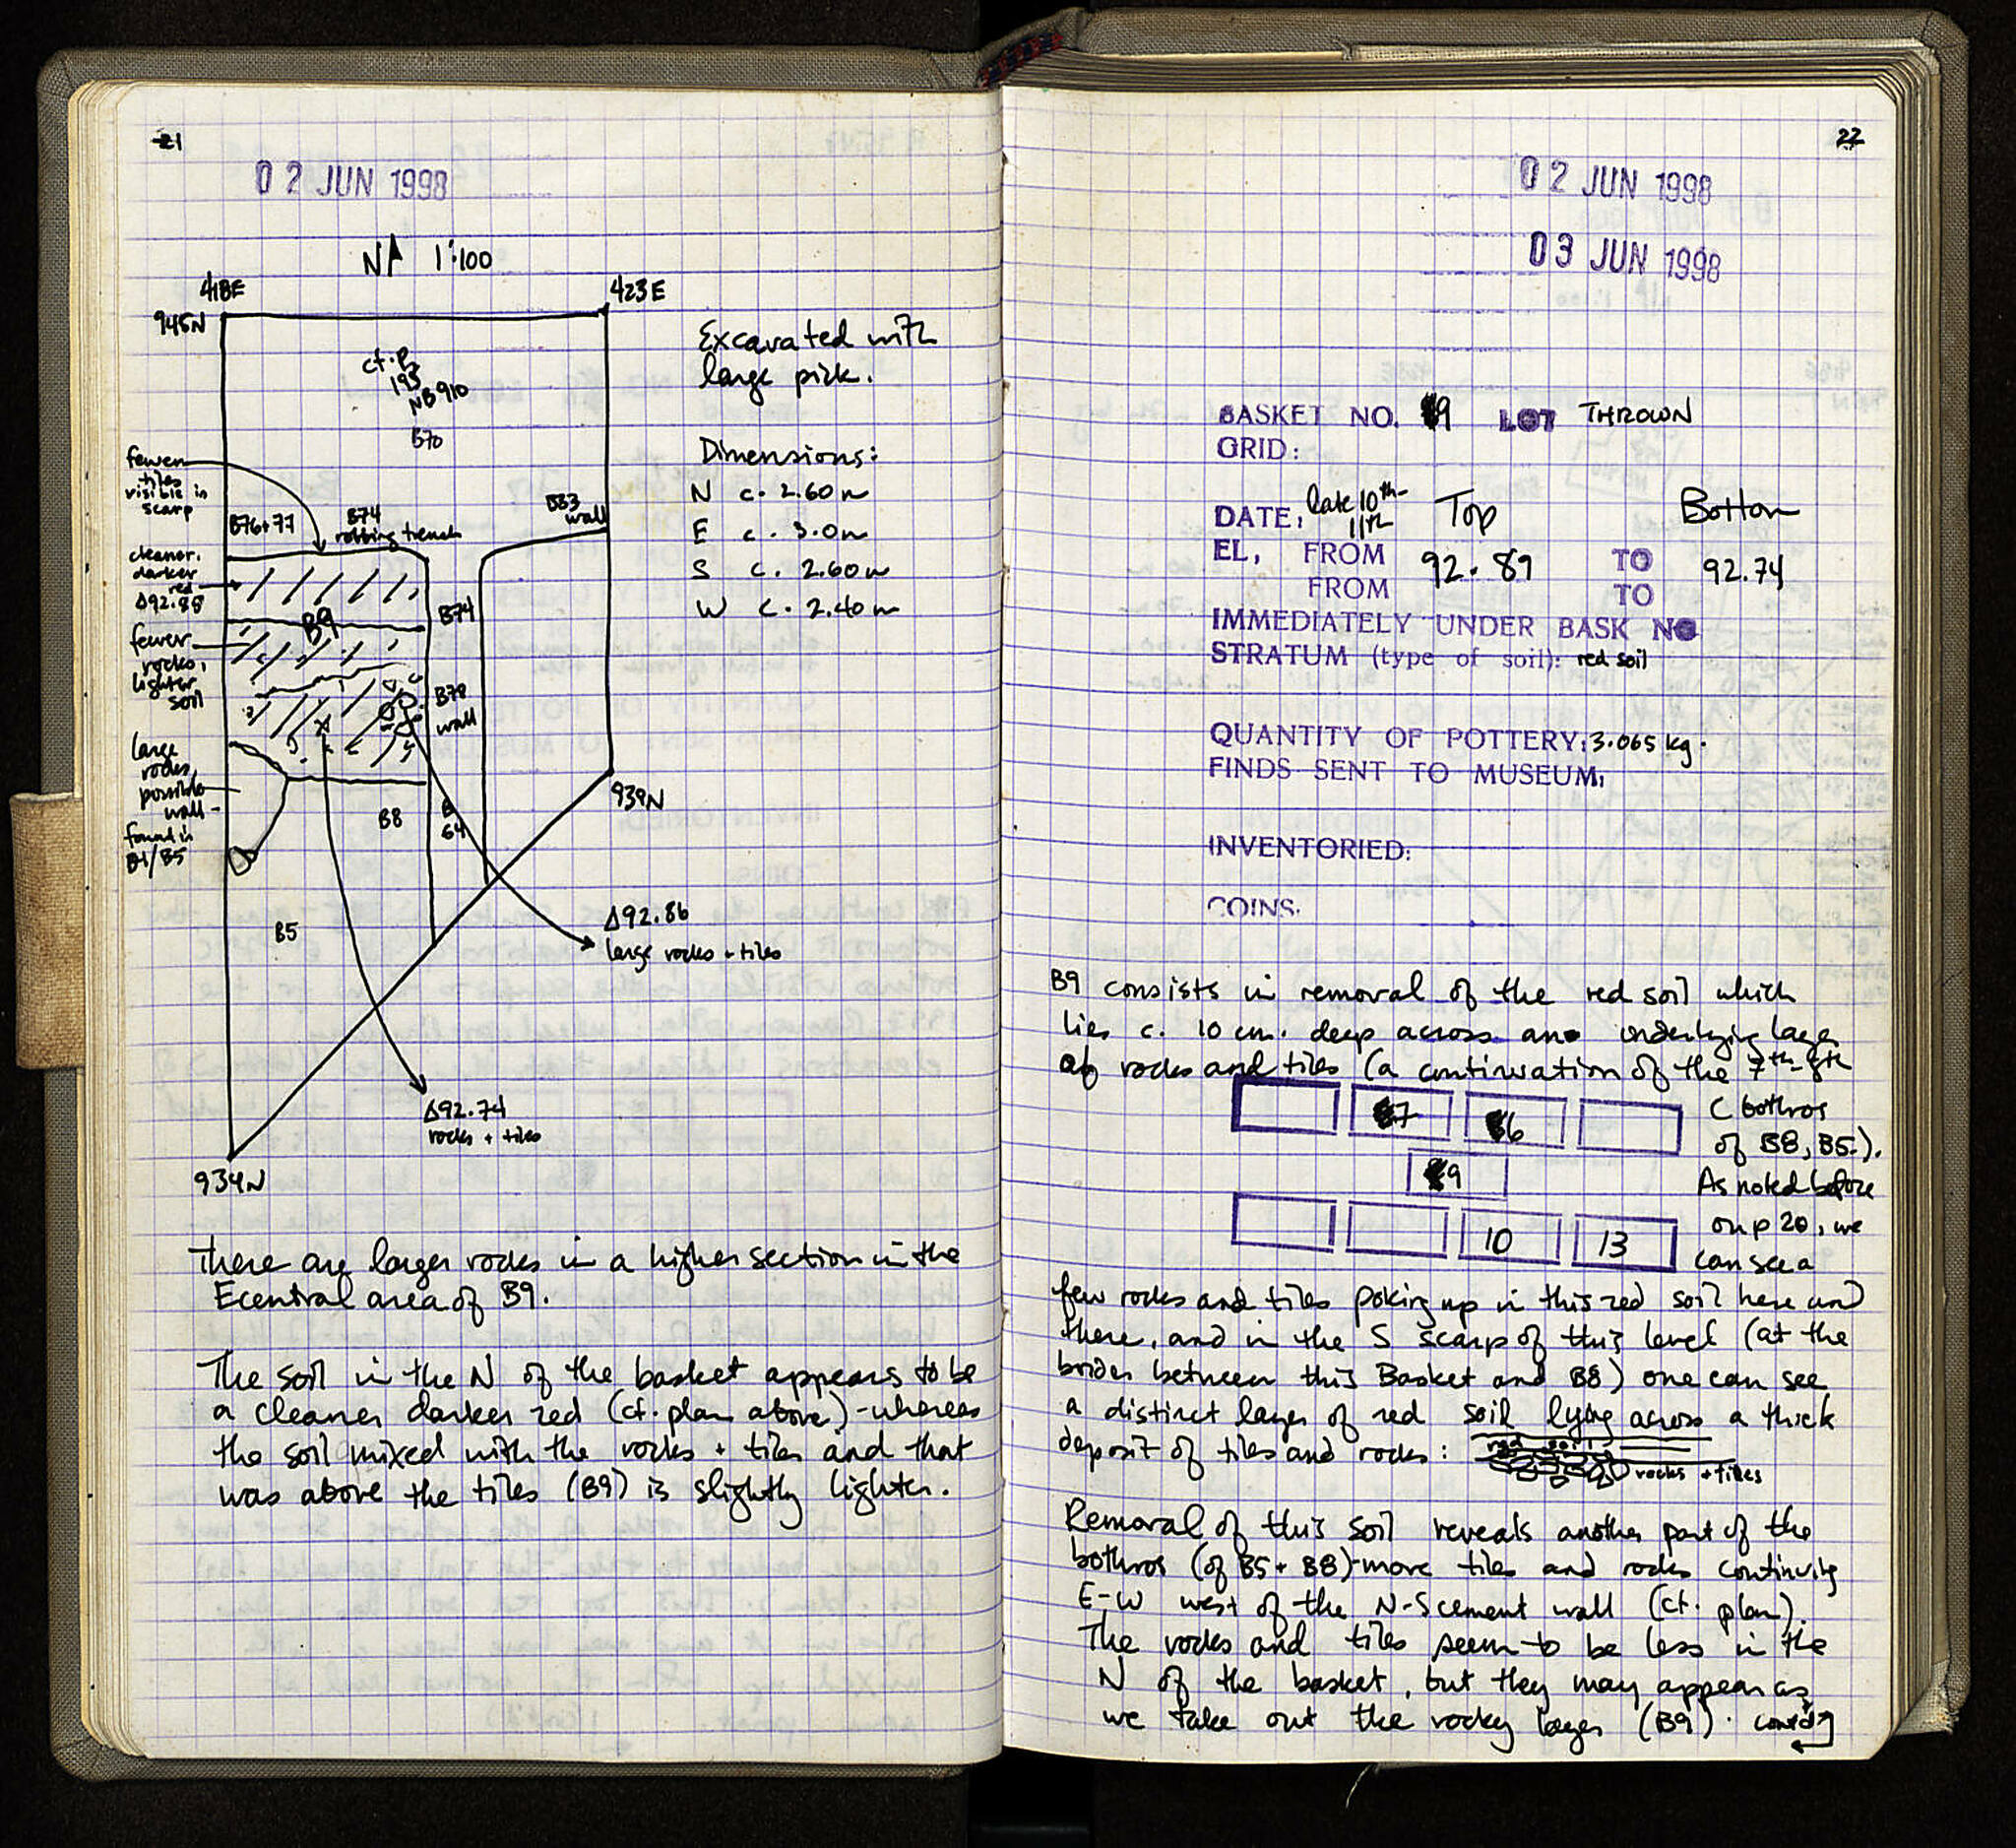 21
02 JUN 1998
N 1:100
418E
423E
945N
cf. P.
193
NB910
B70
Excavated with
large pick.
Dimensions:
N c. 2.60m
E c. 3.0m
S c. 2.60m
W c. 2.40m
fewer
tiles
visible in
scarp
B76+77
B74
robbing trench
B33
wall
cleaner,
darker
red
Δ92.88
B9
B74
fewer
rocks,
lighter
soil
B78
wall
large
rocks
possible
wall -
found in
B1/B5
B8
B
64
939N
B5
Δ92.86
large rocks + tiles
Δ92.74
rocks + tiles
934N
There are larger rocks in a higher section in the
E central area of B9.
The soil in the N of the basket appears to be
a cleaner darker red (cf. plan above) - whereas
the soil mixed with the rocks + tiles and that
was above the tiles (B9) is slightly lighter.
22
02 JUN 1998
03 JUN 1998
BASKET NO. 9 LOT THROWN
GRID:
DATE: late 10th-
11th
Top Bottom
EL, FROM 92.89 TO 92.74
FROM TO
IMMEDIATELY UNDER BASK NO
STRATUM (type of soil): red soil
QUANTITY OF POTTERY: 3.065 kg.
FINDS SENT TO MUSEUM:
INVENTORIED:
COINS.
B9 consists in removal of the red soil which
lies c. 10 cm. deep across an underlying layer
of rocks and tiles (a continuation of the 7th-8th
C bothros
of B8, B5.).
7 6
9
10 13
As noted before
on p 20, we
can see a
few rocks and tiles poking up in this red soil here and
there, and in the S scarp of this level (at the
border between this Basket and B8) one can see
a distinct layer of red soil lying across a thick
deposit of tiles and rocks:
red soil
rocks + tiles
Removal of this soil reveals another part of the
bothros (of B5 + B8) - more tiles and rocks continuing
E-W west of the N-S cement wall (cf. plan).
The rocks and tiles seem to be less in the
N of the basket, but they may appear as
we take out the rocky layer (B9). cont'd